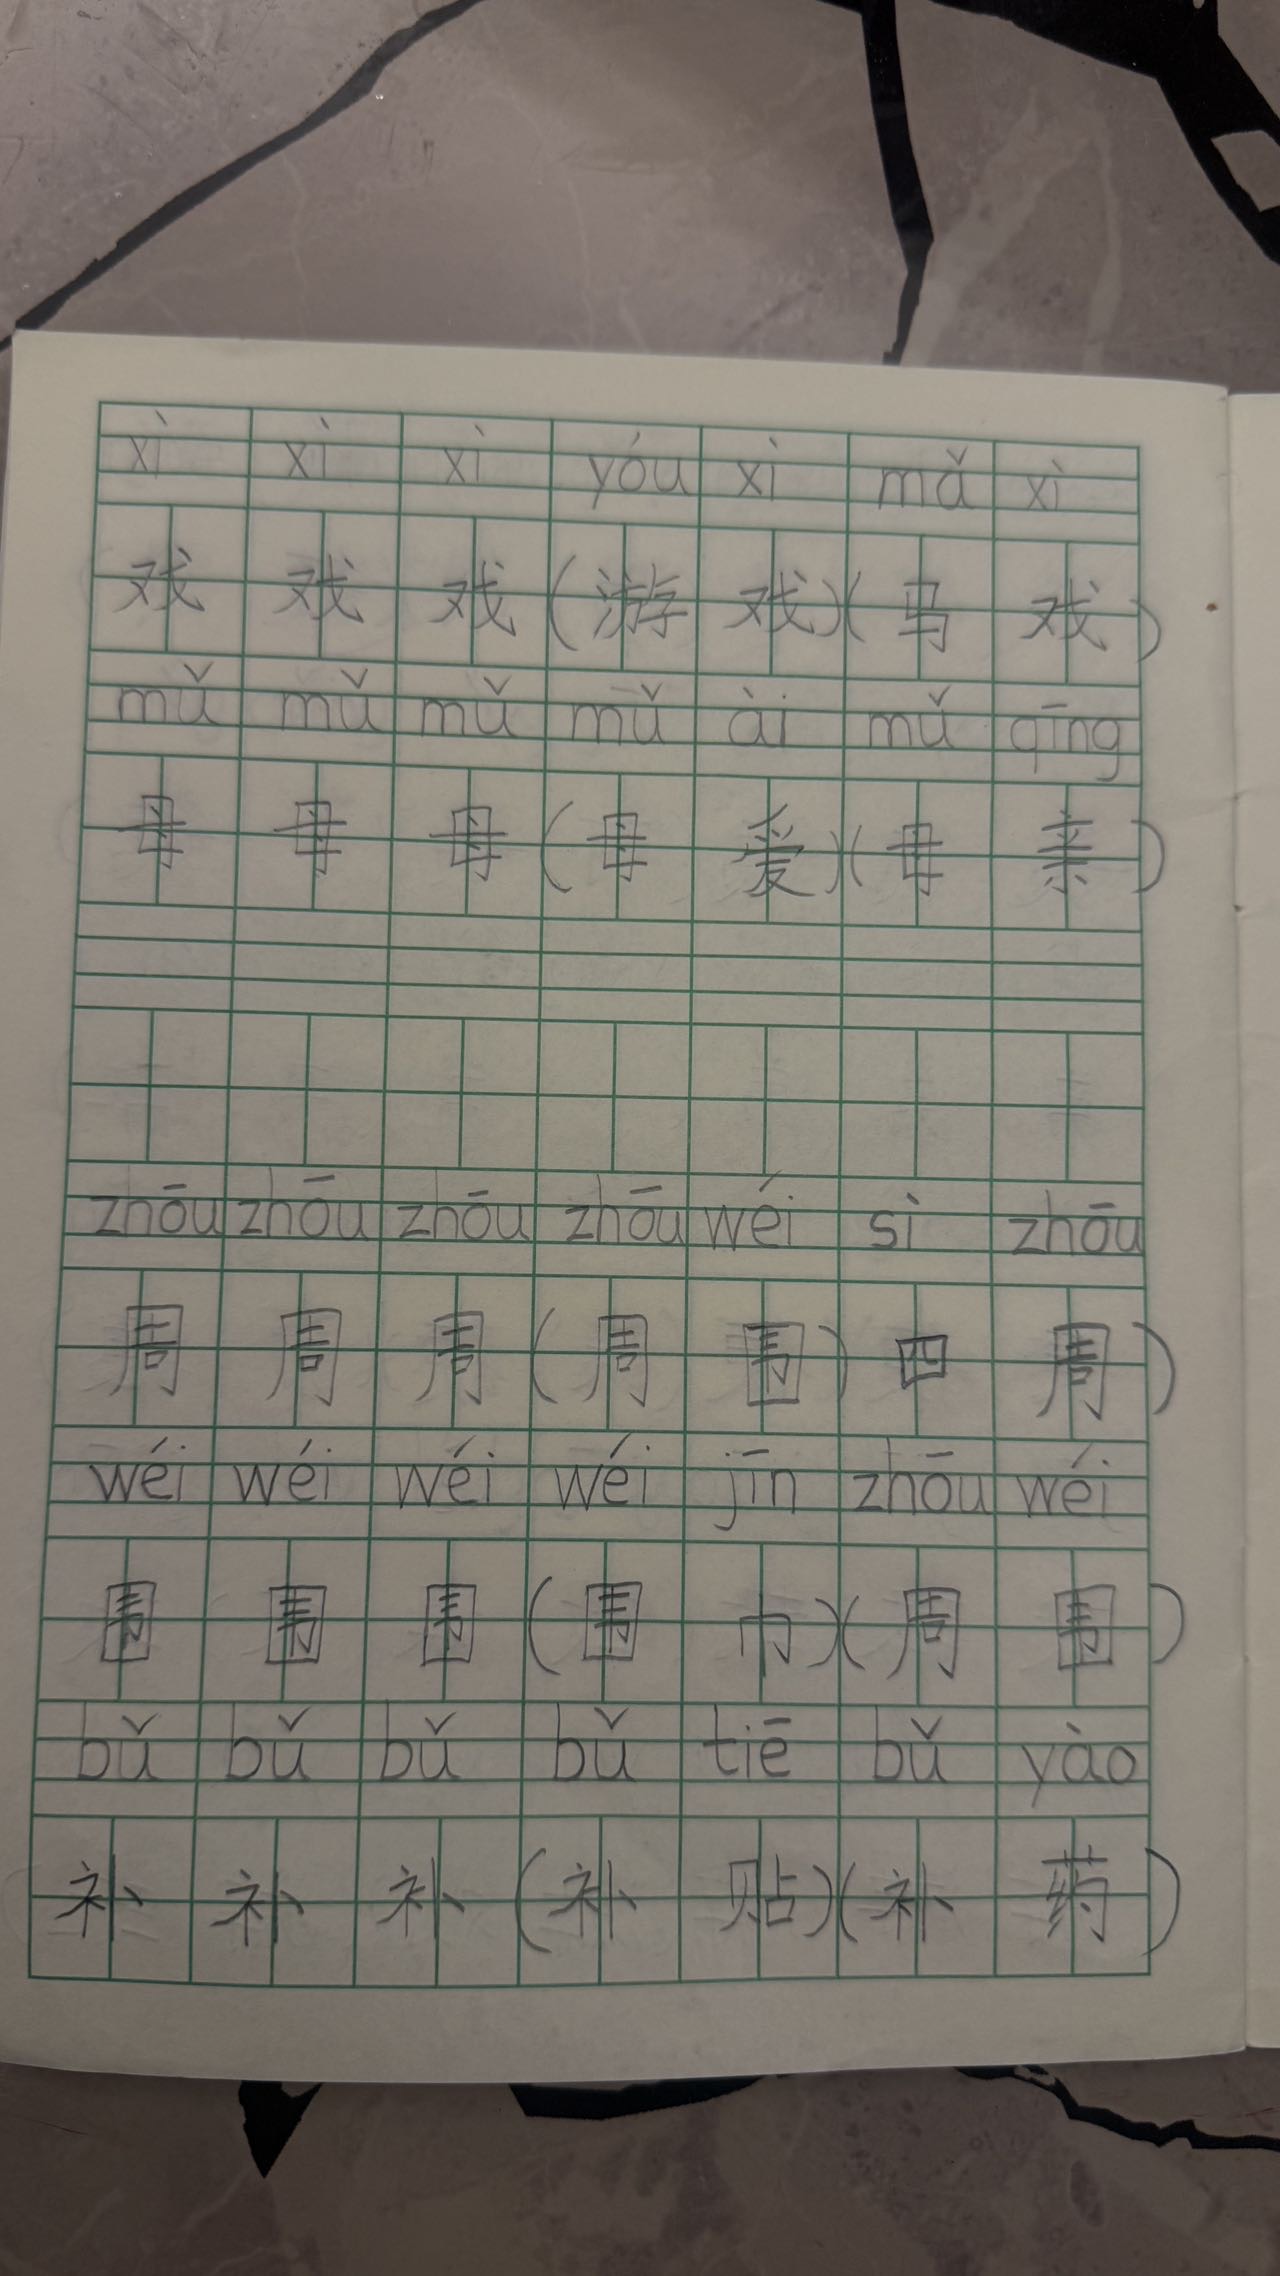 xì xì xì yóu xì mǎ xì
戏 戏 戏 (游 戏)(马 戏)
mǔ mǔ mǔ mǔ ài mǔ qīng
母 母 母 (母 爱)(母 亲)
zhōu zhōu zhōu zhōu wéi sì zhōu
周 周 周 (周 围) 四 周)
wéi wéi wéi wéi jīn zhōu wéi
围 围 围 (围 巾)(周 围)
bǔ bǔ bǔ bǔ tiē bǔ yào
补 补 补 (补 贴)(补 药)